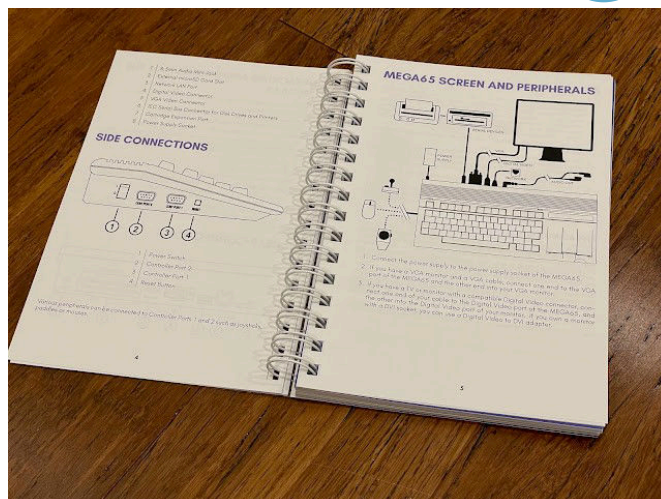 3.5mm Audio Mini-Jack
External microSD Card Slot
Network LAN Port
Digital Video Connector
VGA Video Connector
IEC Serial Bus Connector for Disk Drives and Printers
Cartridge Expansion Port
Power Supply Socket
SIDE CONNECTIONS
1 2 3 4
1 Power Switch
2 Controller Port 2
3 Controller Port 1
4 Reset Button
Various peripherals can be connected to Controller Ports 1 and 2 such as joysticks,
paddles or mouses.
4
MEGA65 SCREEN AND PERIPHERALS
POWER
VGA
1. Connect the power supply to the power supply socket of the MEGA65.
2. If you have a VGA monitor and a VGA cable, connect one end to the VGA
port of the MEGA65 and the other end into your VGA monitor.
3. If you have a TV or monitor with a compatible Digital Video connector, con-
nect one end of your cable to the Digital Video port of the MEGA65, and
the other into the Digital Video port of your monitor. If you own a monitor
with a DVI socket, you can use a Digital Video to DVI adapter.
5